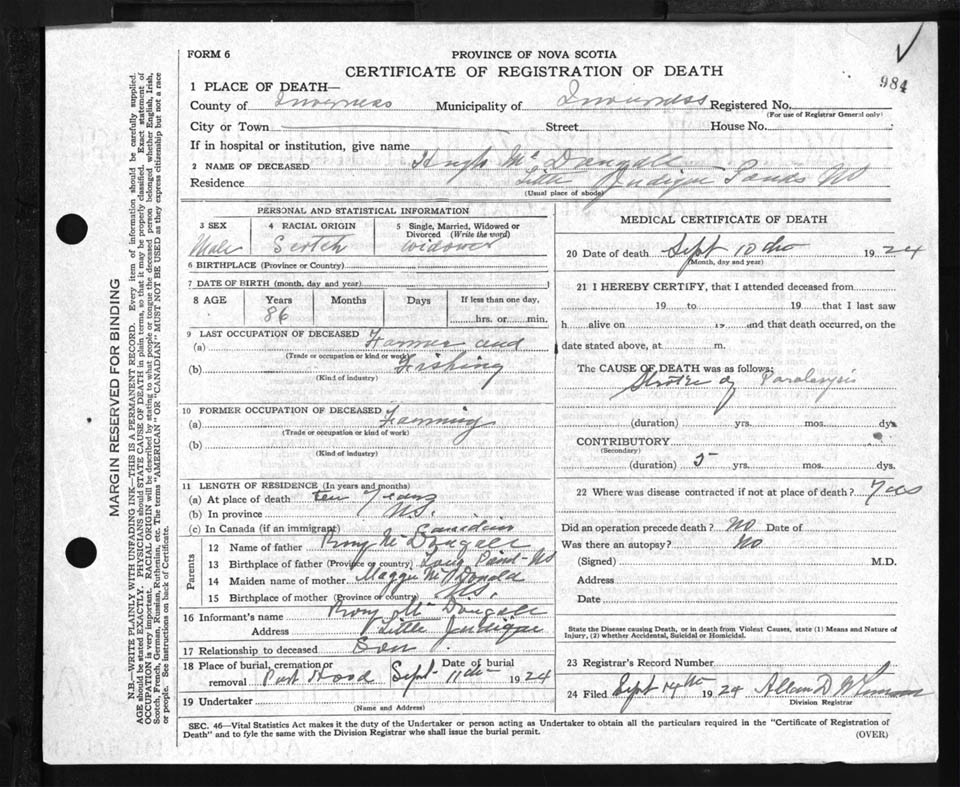 984
FORM 6
PROVINCE OF NOVA SCOTIA
CERTIFICATE OF REGISTRATION OF DEATH
1 PLACE OF DEATH—
County of Inverness Municipality of Inverness Registered No.
(For use of Registrar General only)
City or Town Street House No.
If in hospital or institution, give name
2 NAME OF DECEASED Hugh Mc Dougall
Residence Little Judique Ponds NS
(Usual place of abode)
PERSONAL AND STATISTICAL INFORMATION
3 SEX 4 RACIAL ORIGIN 5 Single, Married, Widowed or Divorced (Write the word)
Male Scotch Widower
6 BIRTHPLACE (Province or Country)
7 DATE OF BIRTH (month, day and year)
8 AGE Years Months Days If less than one day,
86 hrs. or min.
9 LAST OCCUPATION OF DECEASED
(a) Farmer and
(Trade or occupation or kind or work)
(b) Fishing
(Kind of industry)
10 FORMER OCCUPATION OF DECEASED
(a) Farming
(Trade or occupation or kind of work)
(b)
(Kind of industry)
11 LENGTH OF RESIDENCE (In years and months)
(a) At place of death ten years
(b) In province NS.
(c) In Canada (if an immigrant) Canadian
Parents
12 Name of father Rory McDougall
13 Birthplace of father (Province or country) Long Point NS
14 Maiden name of mother Maggie McDonald
15 Birthplace of mother (Province or country) NS.
16 Informant's name Rory McDougall
Address Little Judique
17 Relationship to deceased Son
18 Place of burial, cremation or removal Port Hood Date of burial Sept 11th 1924
19 Undertaker
(Name and Address)
MEDICAL CERTIFICATE OF DEATH
20 Date of death Sept 10th 1924
(Month, day and year)
21 I HEREBY CERTIFY, that I attended deceased from
19 to 19 that I last saw
h alive on 19 and that death occurred, on the
date stated above, at m.
The CAUSE OF DEATH was as follows:
Stroke of Paralysis
(duration) yrs. mos. dys.
CONTRIBUTORY
(Secondary)
(duration) 5 yrs. mos. dys.
22 Where was disease contracted if not at place of death?
Did an operation precede death? NO Date of
Was there an autopsy? NO
(Signed) M.D.
Address
Date
State the Disease causing Death, or in death from Violent Causes, state (1) Means and Nature of
Injury, (2) whether Accidental, Suicidal or Homicidal.
23 Registrar's Record Number
24 Filed Sept 1924 Allan D
Division Registrar
SEC. 46—Vital Statistics Act makes it the duty of the Undertaker or person acting as Undertaker to obtain all the particulars required in the "Certificate of Registration of
Death" and to fyle the same with the Division Registrar who shall issue the burial permit.
(OVER)
MARGIN RESERVED FOR BINDING
N.B.—WRITE PLAINLY WITH UNFADING INK—THIS IS A PERMANENT RECORD. Every item of information should be carefully supplied.
AGE should be stated EXACTLY. PHYSICIANS should STATE CAUSE OF DEATH in plain terms, so that it may be properly classified. Exact statement of
OCCUPATION is very important. RACIAL ORIGIN will be described by stating to what people or tongue the deceased person belonged whether English, Irish,
Scotch, French, German, Russian, Ruthenian, etc. The terms "AMERICAN" OR "CANADIAN" MUST NOT BE USED as they express citizenship but not a race
or people. See instructions on back of Certificate.